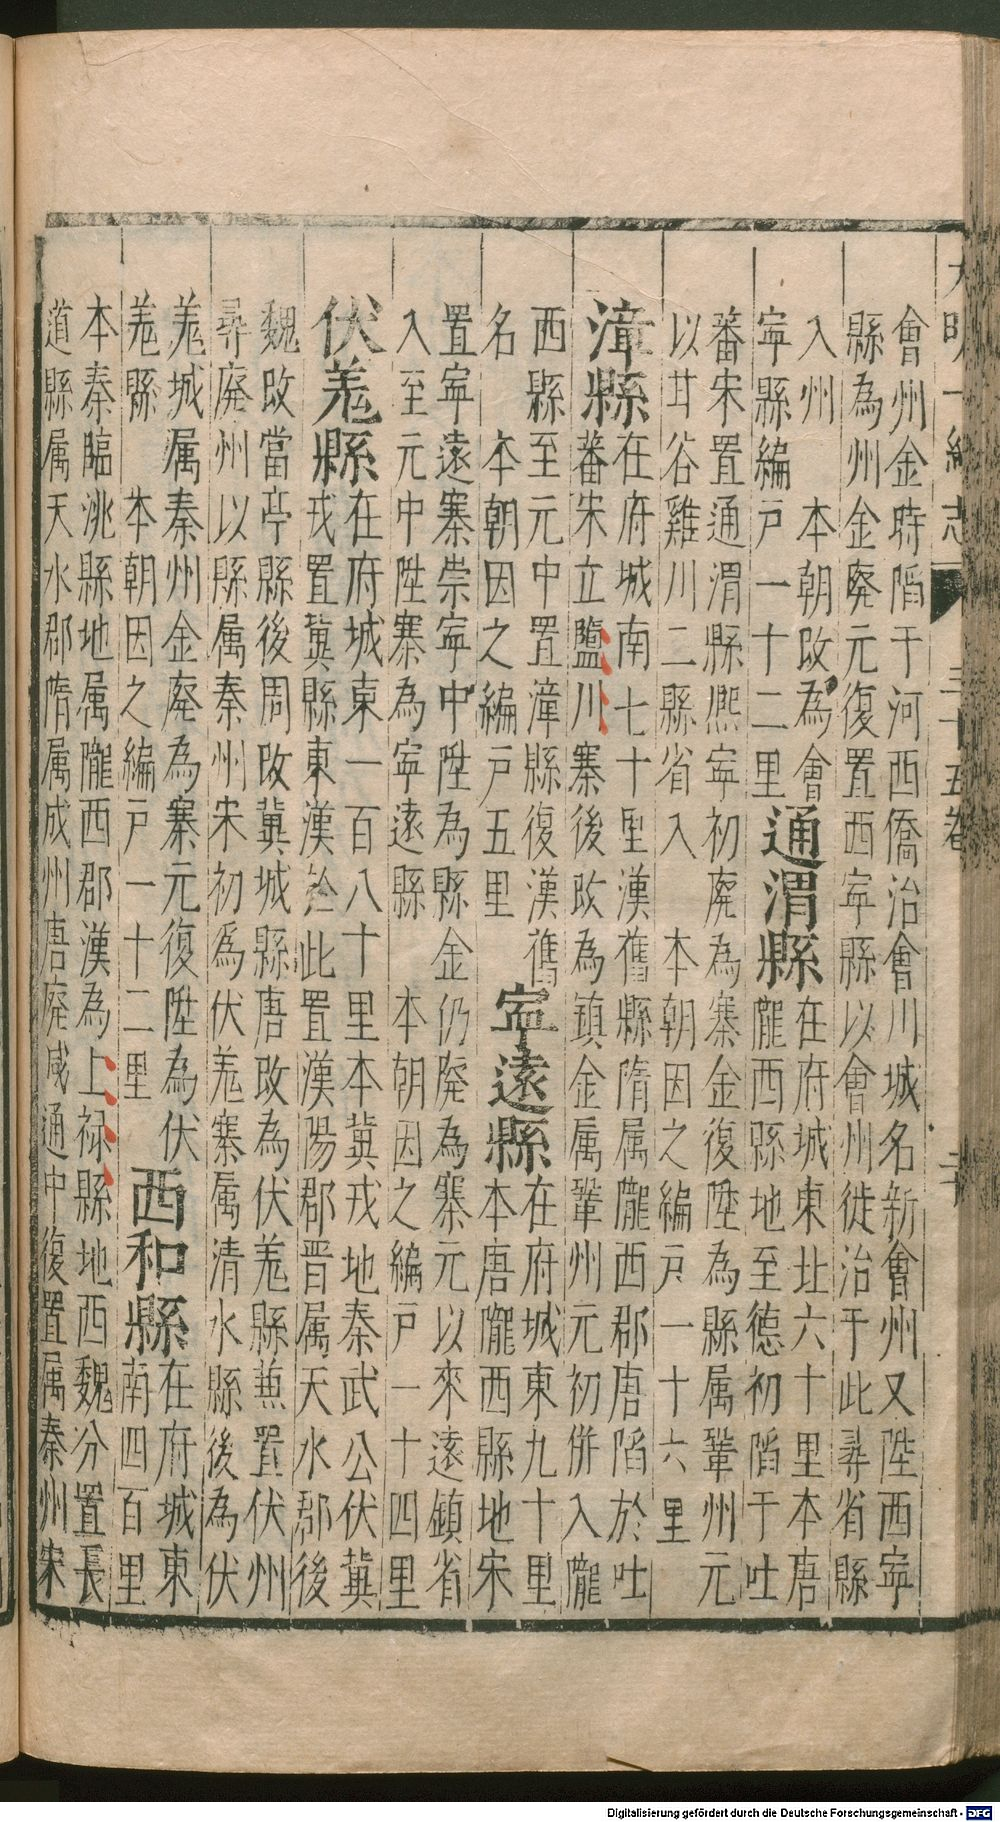 大明一統志 三十五卷 二十
會州金時陷于河西僑治會川城名新會州又陞西寧
縣為州金廢元復置西寧縣以會州徙治于此尋省縣
入州 本朝改為會
寧縣編戶一十二里
通渭縣
在府城東北六十里本唐
隴西縣地至德初陷于吐
蕃宋置通渭縣熙寧初廢為寨金復陞為縣属鞏州元
以甘谷雞川二縣省入 本朝因之編戶一十六里
漳縣
在府城南七十里漢舊縣隋属隴西郡唐陷於吐
蕃宋立鹽川寨後改為鎮金属鞏州元初併入隴
西縣至元中置漳縣復漢舊
名 本朝因之編戶五里
寧遠縣
在府城東九十里
本唐隴西縣地宋
置寧遠寨崇寧中陞為縣金仍廢為寨元以來遠鎮省
入至元中陞寨為寧遠縣 本朝因之編戶一十四里
伏羌縣
在府城東一百八十里本冀戎地秦武公伏冀
戎置冀縣東漢於此置漢陽郡晋属天水郡後
魏改當亭縣後周改冀城縣唐改為伏羌縣兼置伏州
尋廢州以縣属秦州宋初爲伏羌寨属清水縣後為伏
羌城属秦州金廢為寨元復陞為伏
羌縣 本朝因之編戶一十二里
西和縣
在府城東
南四百里
本秦臨洮縣地属隴西郡漢為上禄縣地西魏分置長
道縣属天水郡隋属成州唐廢咸通中復置属秦州宋
Digitalisierung gefördert durch die Deutsche Forschungsgemeinschaft - DFG